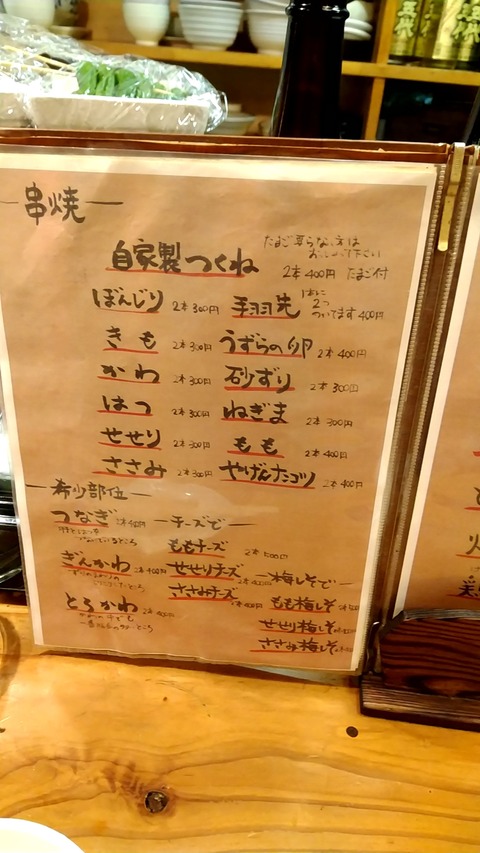 串焼
自家製つくね 2本400円 たまご付
たまご要らない方は
おっしゃって下さい
ぼんじり 2本300円
手羽先 1本に
2つ
ついてます 400円
きも 2本300円
うずらの卵 2本400円
かわ 2本300円
砂ずり 2本300円
はつ 2本300円
ねぎま 2本300円
せせり 2本300円
もも 2本400円
ささみ 2本300円
やげんナンコツ 2本400円
希少部位
つなぎ 2本400円
ぎんかわ 2本400円
とろかわ 2本400円
チーズで
ももチーズ 2本500円
せせりチーズ
ささみチーズ 2本400円
梅しそで
もも梅しそ
せせり梅しそ
ささみ梅しそ